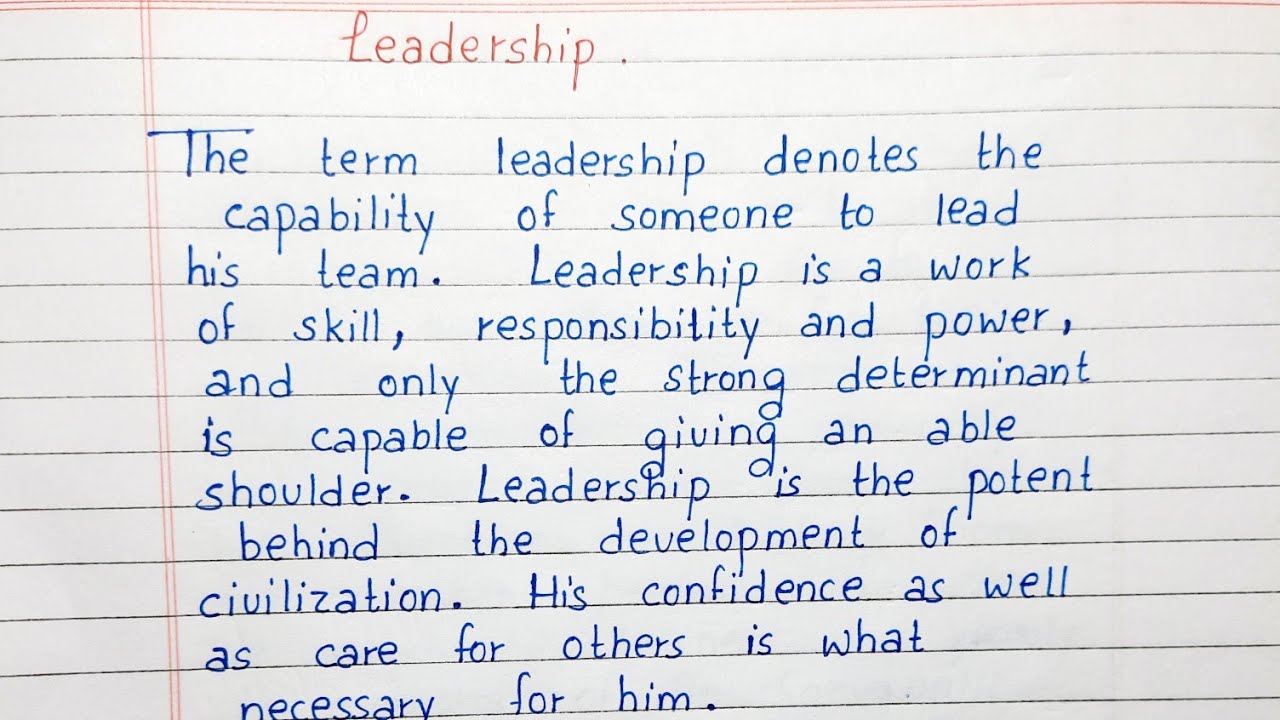 Leadership.
The term leadership denotes the
capability of someone to lead
his team. Leadership is a work
of skill, responsibility and power,
and only the strong determinant
is capable of giving an able
shoulder. Leadership is the potent
behind the development of
civilization. His confidence as well
as care for others is what
necessary for him.